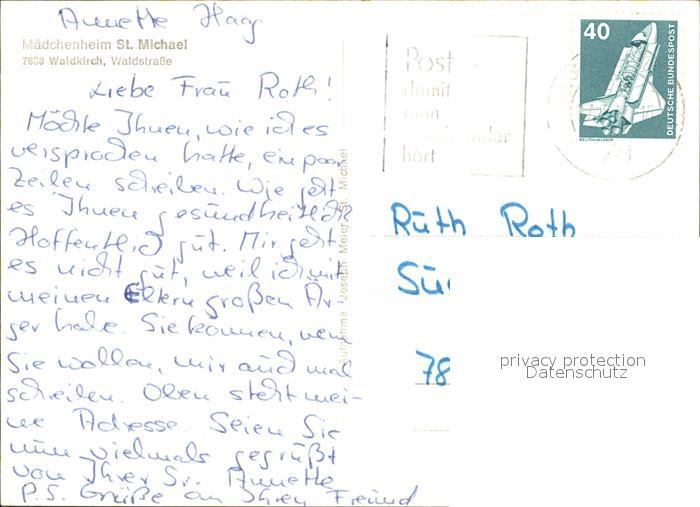 Annette Hag
Mädchenheim St. Michael
7808 Waldkirch, Waldstraße
Liebe Frau Roth!
Möchte Ihnen, wie ich es
versprochen hatte, ein paar
Zeilen schreiben. Wie geht
es Ihnen gesundheitlich
Hoffentlich gut. Mir geht
es nicht gut, weil ich mit
meinen Eltern großen Är-
ger habe. Sie können, wenn
Sie wollen, mir auch mal
schreiben. Oben steht mei-
ne Adresse. Seien Sie
nun vielmals gegrüßt
von Ihrer Sr. Annette
P.S. Grüße an Ihren Freund
Aufnahme: Joseph Meier, St. Michael
Post -
damit
man
hört
40
DEUTSCHE BUNDESPOST
WELTRAUMLABOR
Ruth Roth
78
privacy protection
Datenschutz